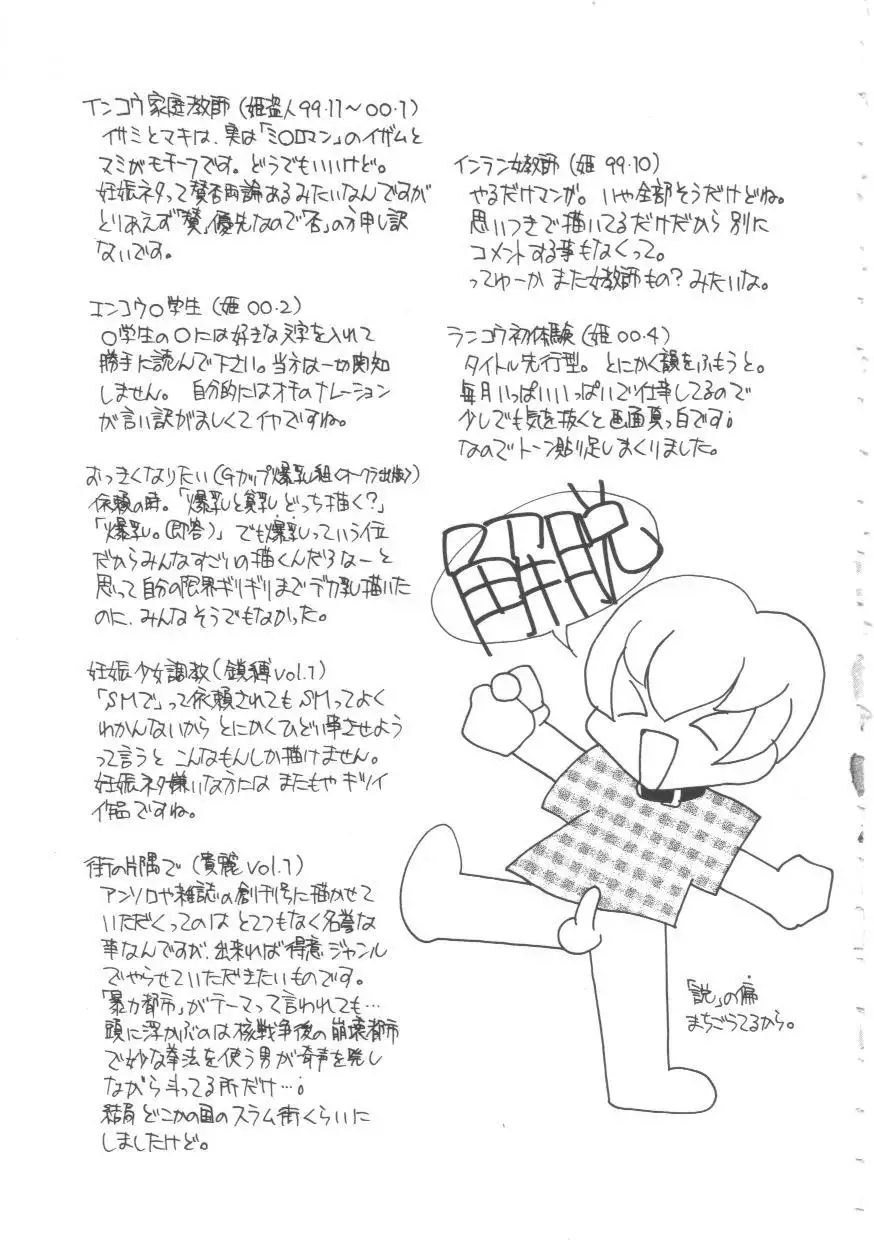 インコウ家庭教師(姫盗人99.11～00.1)
イサミとマキは、実は「ミ○ロマン」のイザムと
マミがモチーフです。どうでもいいけど。
妊娠ネタって賛否両論あるみたいなんですが
とりあえず「賛」優先なので「否」の方申し訳
ないです。
エンコウ○学生(姫00.2)
○学生の○には好きな文字を入れて
勝手に読んで下さい。当方は一切関知
しません。自分的にはオチのナレーション
が言い訳がましくてイヤですね。
おっきくなりたい(Gカップ爆乳組<オークラ出版>)
依頼の時。「爆乳と貧乳どっち描く?」
「爆乳。(即答)」でも爆乳っていう位
だからみんなすごいの描くんだろなーと
思って自分の限界ギリギリまでデカ乳描いた
のに、みんなそうでもなかった。
妊娠少女調教(鎖縛vol.1)
「SMで」って依頼されてもSMってよく
わかんないからとにかくひどい事させよう
って言うとこんなもんしか描けません。
妊娠ネタ嫌いな方にはまたもやキツイ
作品ですね。
街の片隅で(貴麗vol.1)
アンソロや雑誌の創刊号に描かせて
いただくってのはとてつもなく名誉な
事なんですが、出来れば得意ジャンル
でやらせていただきたいものです。
「暴力都市」がテーマって言われても…
頭に浮かぶのは核戦争後の崩壊都市
で妙な拳法を使う男が奇声を発し
ながら斗ってる所だけ…。
結局どこかの国のスラム街くらいに
しましたけど。
インラン女教師(姫99.10)
やるだけマンガ。いや全部そうだけどね。
思いつきで描いてるだけだから別に
コメントする事もなくって。
ってゆーかまた女教師もの?みたいな。
ランコウ初体験(姫00.4)
タイトル先行型。とにかく韻をふもうと。
毎月いっぱいいっぱいで仕事してるので
少しでも気を抜くと画面真っ白です。
なのでトーン貼り足しまくりました。
「説」の偏
まちごうてるから。